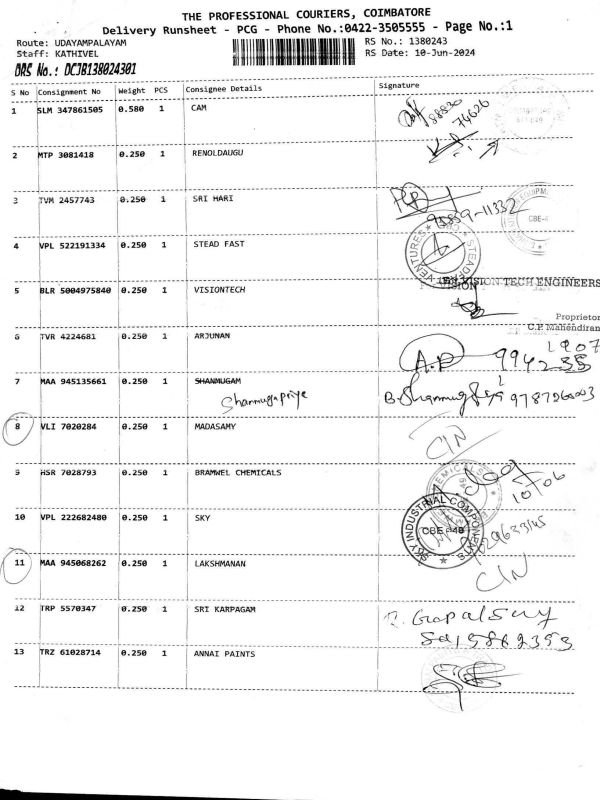 THE PROFESSIONAL COURIERS, COIMBATORE
Delivery Runsheet - PCG - Phone No.:0422-3505555 - Page No.:1
Route: UDAYAMPALAYAM
RS No.: 1380243
Staff: KATHIVEL
RS Date: 10-Jun-2024
DRS No.: DCJB138024301
S No Consignment No Weight PCS Consignee Details Signature
1 SLM 347861505 0.580 1 CAM
2 MTP 3081418 0.250 1 RENOLDAUGU
3 TVM 2457743 0.250 1 SRI HARI
95859-11332
CBE-4
4 VPL 522191334 0.250 1 STEAD FAST
VENTURES
5 BLR 5004975840 0.250 1 VISIONTECH
VISION TECH ENGINEERS
Proprietor
C.P. Mahendiran
6 TVR 4224681 0.250 1 ARJUNAN
A.P
7 MAA 945135661 0.250 1 SHANMUGAM
Shanmugapriye
8 VLI 7020284 0.250 1 MADASAMY
CIN
9 HSR 7028793 0.250 1 BRAMWEL CHEMICALS
10/06
10 VPL 222682480 0.250 1 SKY
SKY INDUSTRIAL COMPONENTS
CBE-49
11 MAA 945068262 0.250 1 LAKSHMANAN
CIN
12 TRP 5570347 0.250 1 SRI KARPAGAM
13 TRZ 61028714 0.250 1 ANNAI PAINTS